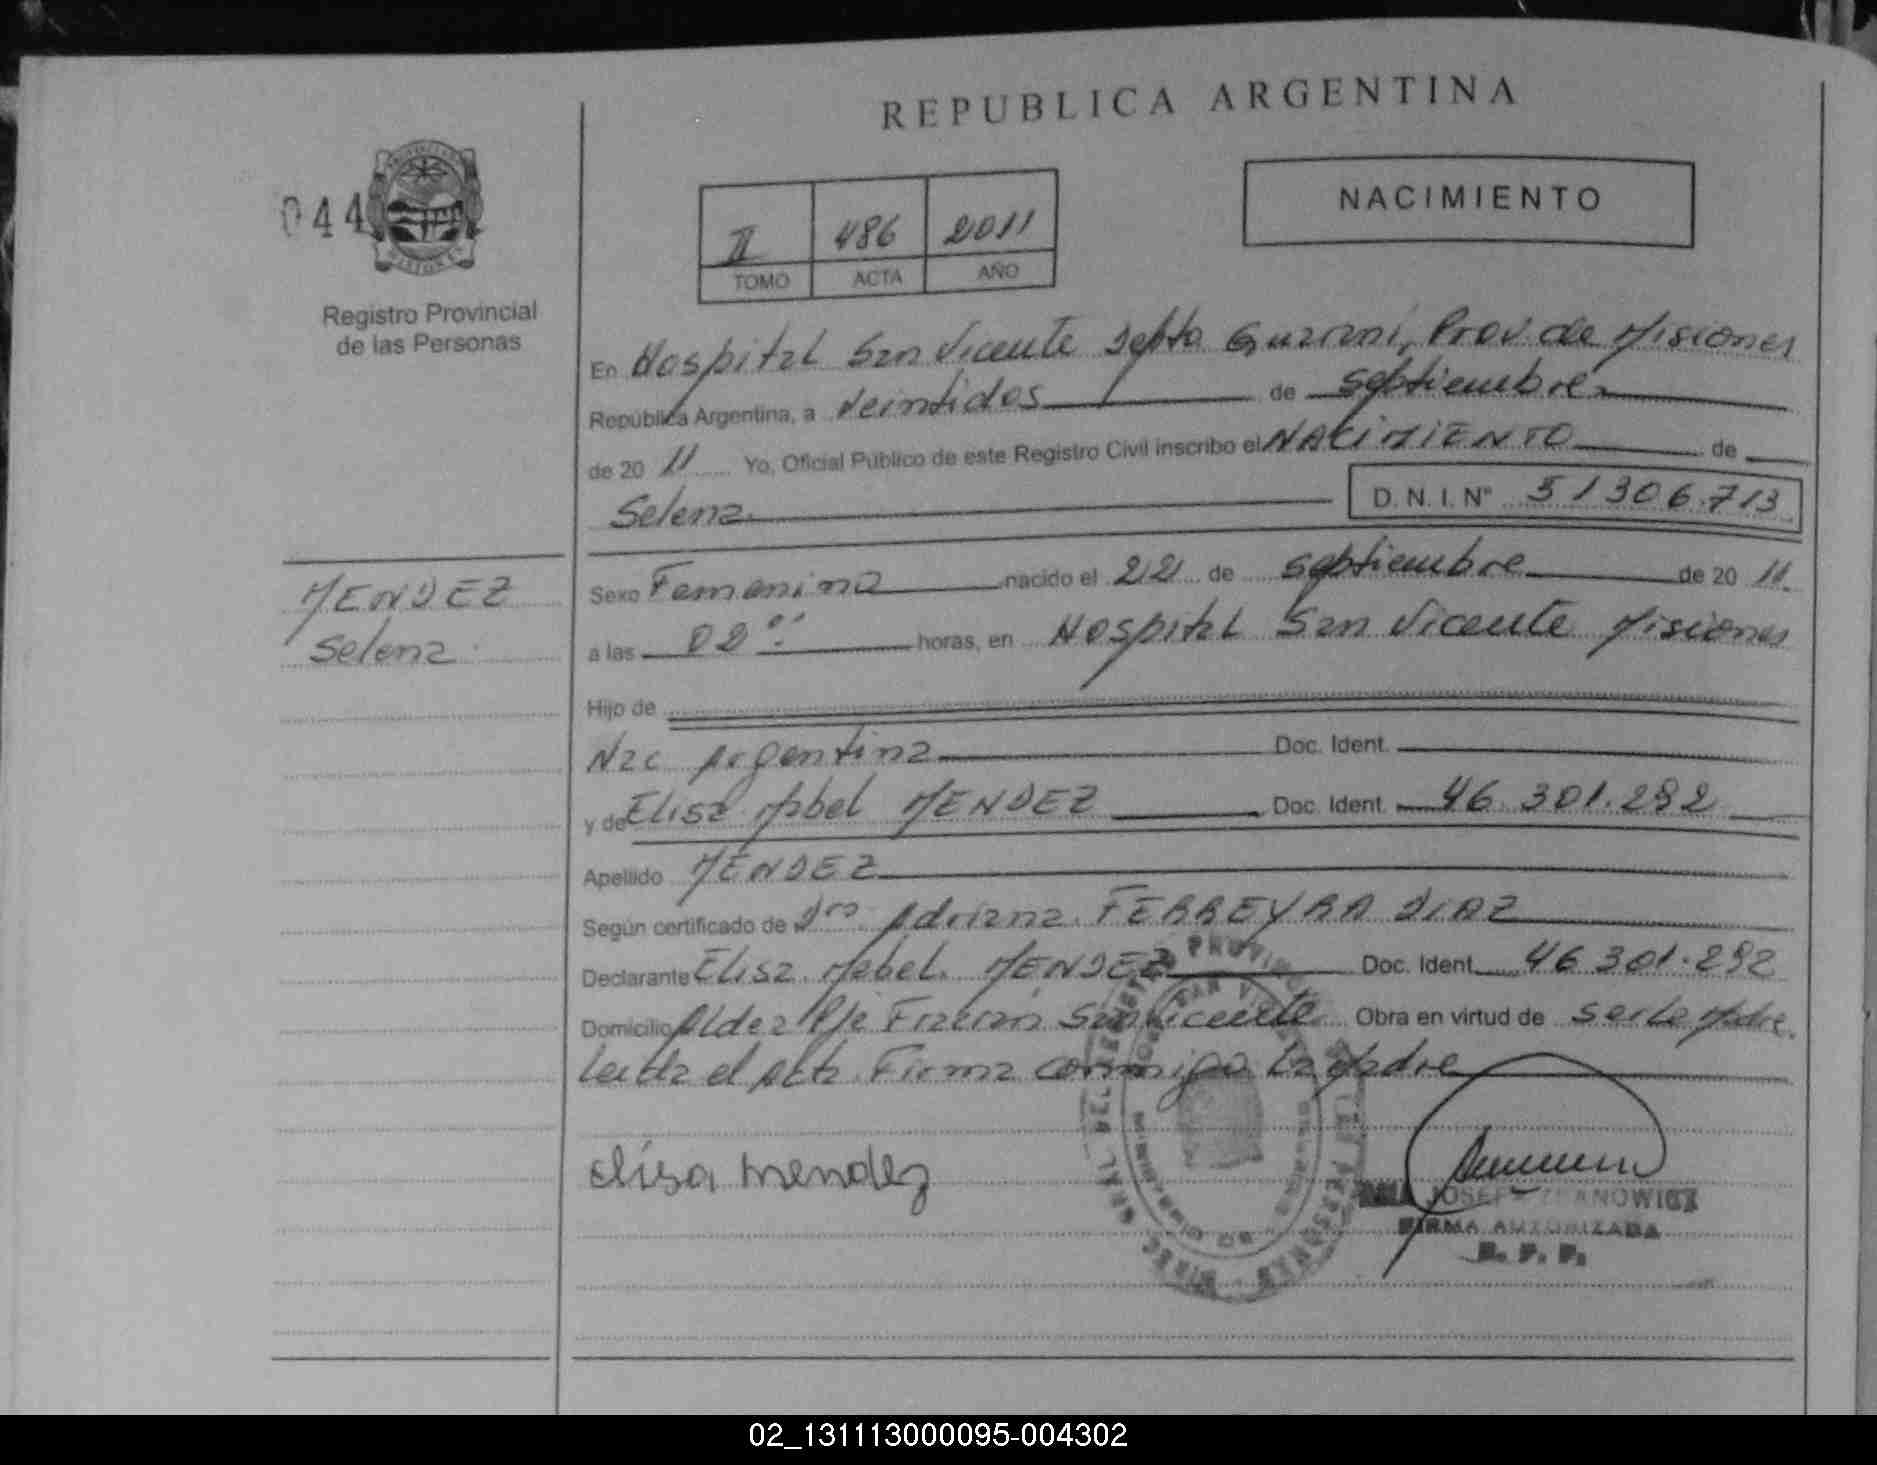 REPUBLICA ARGENTINA
NACIMIENTO
044
II 486 2011
TOMO ACTA AÑO
Registro Provincial
de las Personas
En Hospital San Vicente Depto Guarani, Prov. de Misiones
República Argentina, a veintidos de septiembre
de 20 11 Yo, Oficial Público de este Registro Civil inscribo el NACIMIENTO de
Selena
D.N.I. Nº 51306.713
MENDEZ
Selena
Sexo Femenina nacido el 22 de septiembre de 20 11
a las 02 horas, en Hospital San Vicente Misiones
Hijo de
Nac Argentina Doc. Ident.
y de Elisa Mabel MENDEZ Doc. Ident. 46.301.292
Apellido MENDEZ
Según certificado de Dra Adriana FERREYRA DIAZ
Declarante Elisa Mabel MENDEZ Doc. Ident. 46 301.292
Domicilio Aldea Pje San Vicente Obra en virtud de ser la Madre.
Leida el Acta Firma conmigo La Madre
elisa mendez
FIRMA AUTORIZADA
R. P. P.
02_131113000095-004302